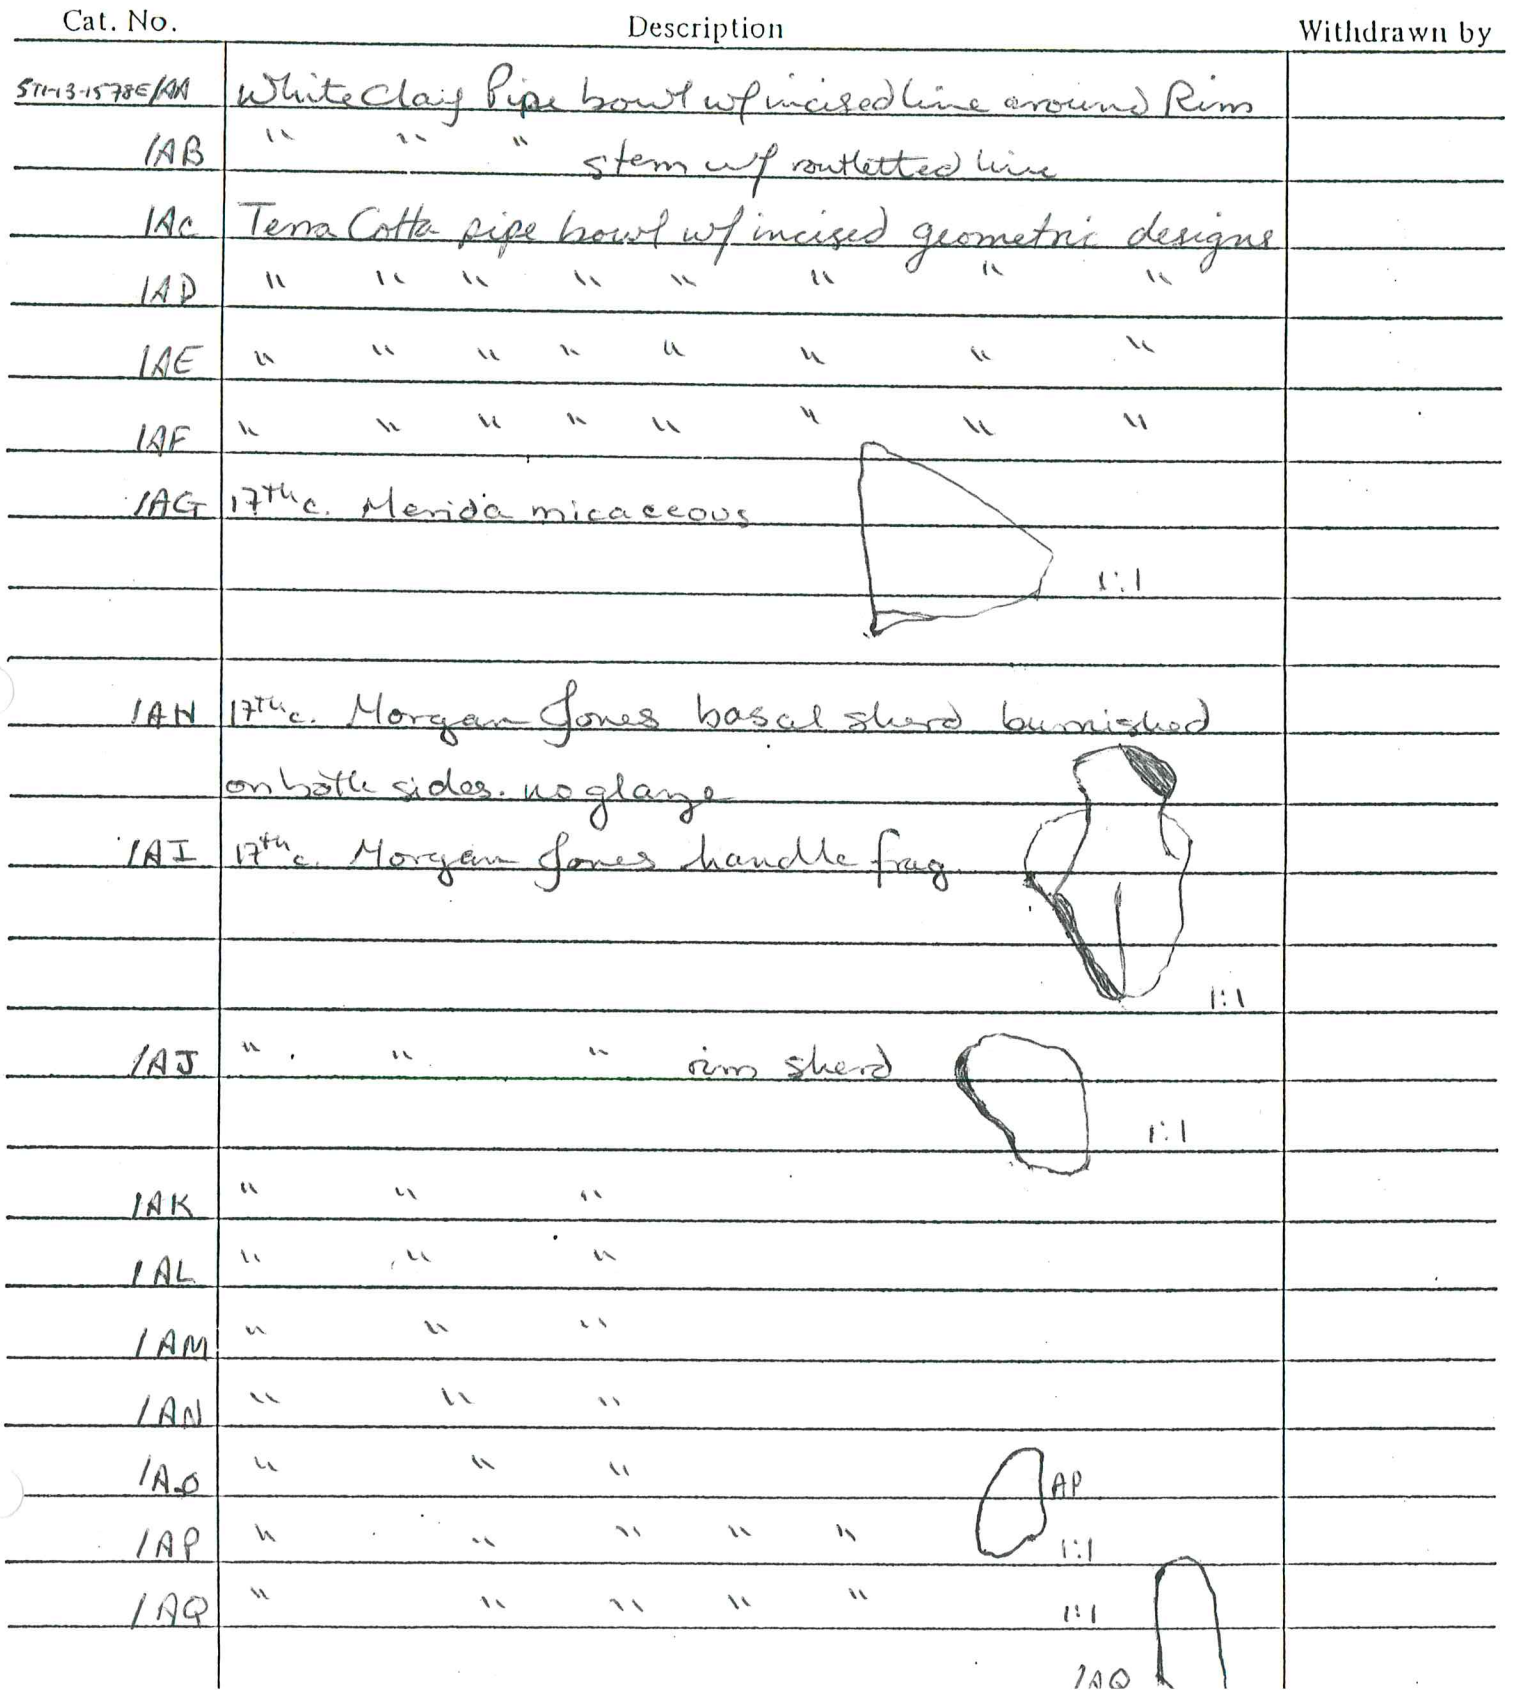 Cat. No. Description Withdrawn by
ST1-13-1578E/AA White Clay Pipe bowl w/ incised line around Rim
/AB " " " stem w/ roulletted line
/AC Terra Cotta pipe bowl w/ incised geometric designs
/AD " " " " " " " "
/AE " " " " " " " "
/AF " " " " " " " "
/AG 17th c. Merida micaceous
1:1
/AH 17th c. Morgan Jones basal sherd burnished
on both sides. no glaze
/AI 17th c. Morgan Jones handle frag.
1:1
/AJ " " " rim sherd
1:1
/AK " " "
/AL " " "
/AM " " "
/AN " " "
/AO " " " AP
/AP " " " " " 1:1
/AQ " " " " " 1:1
/AQ